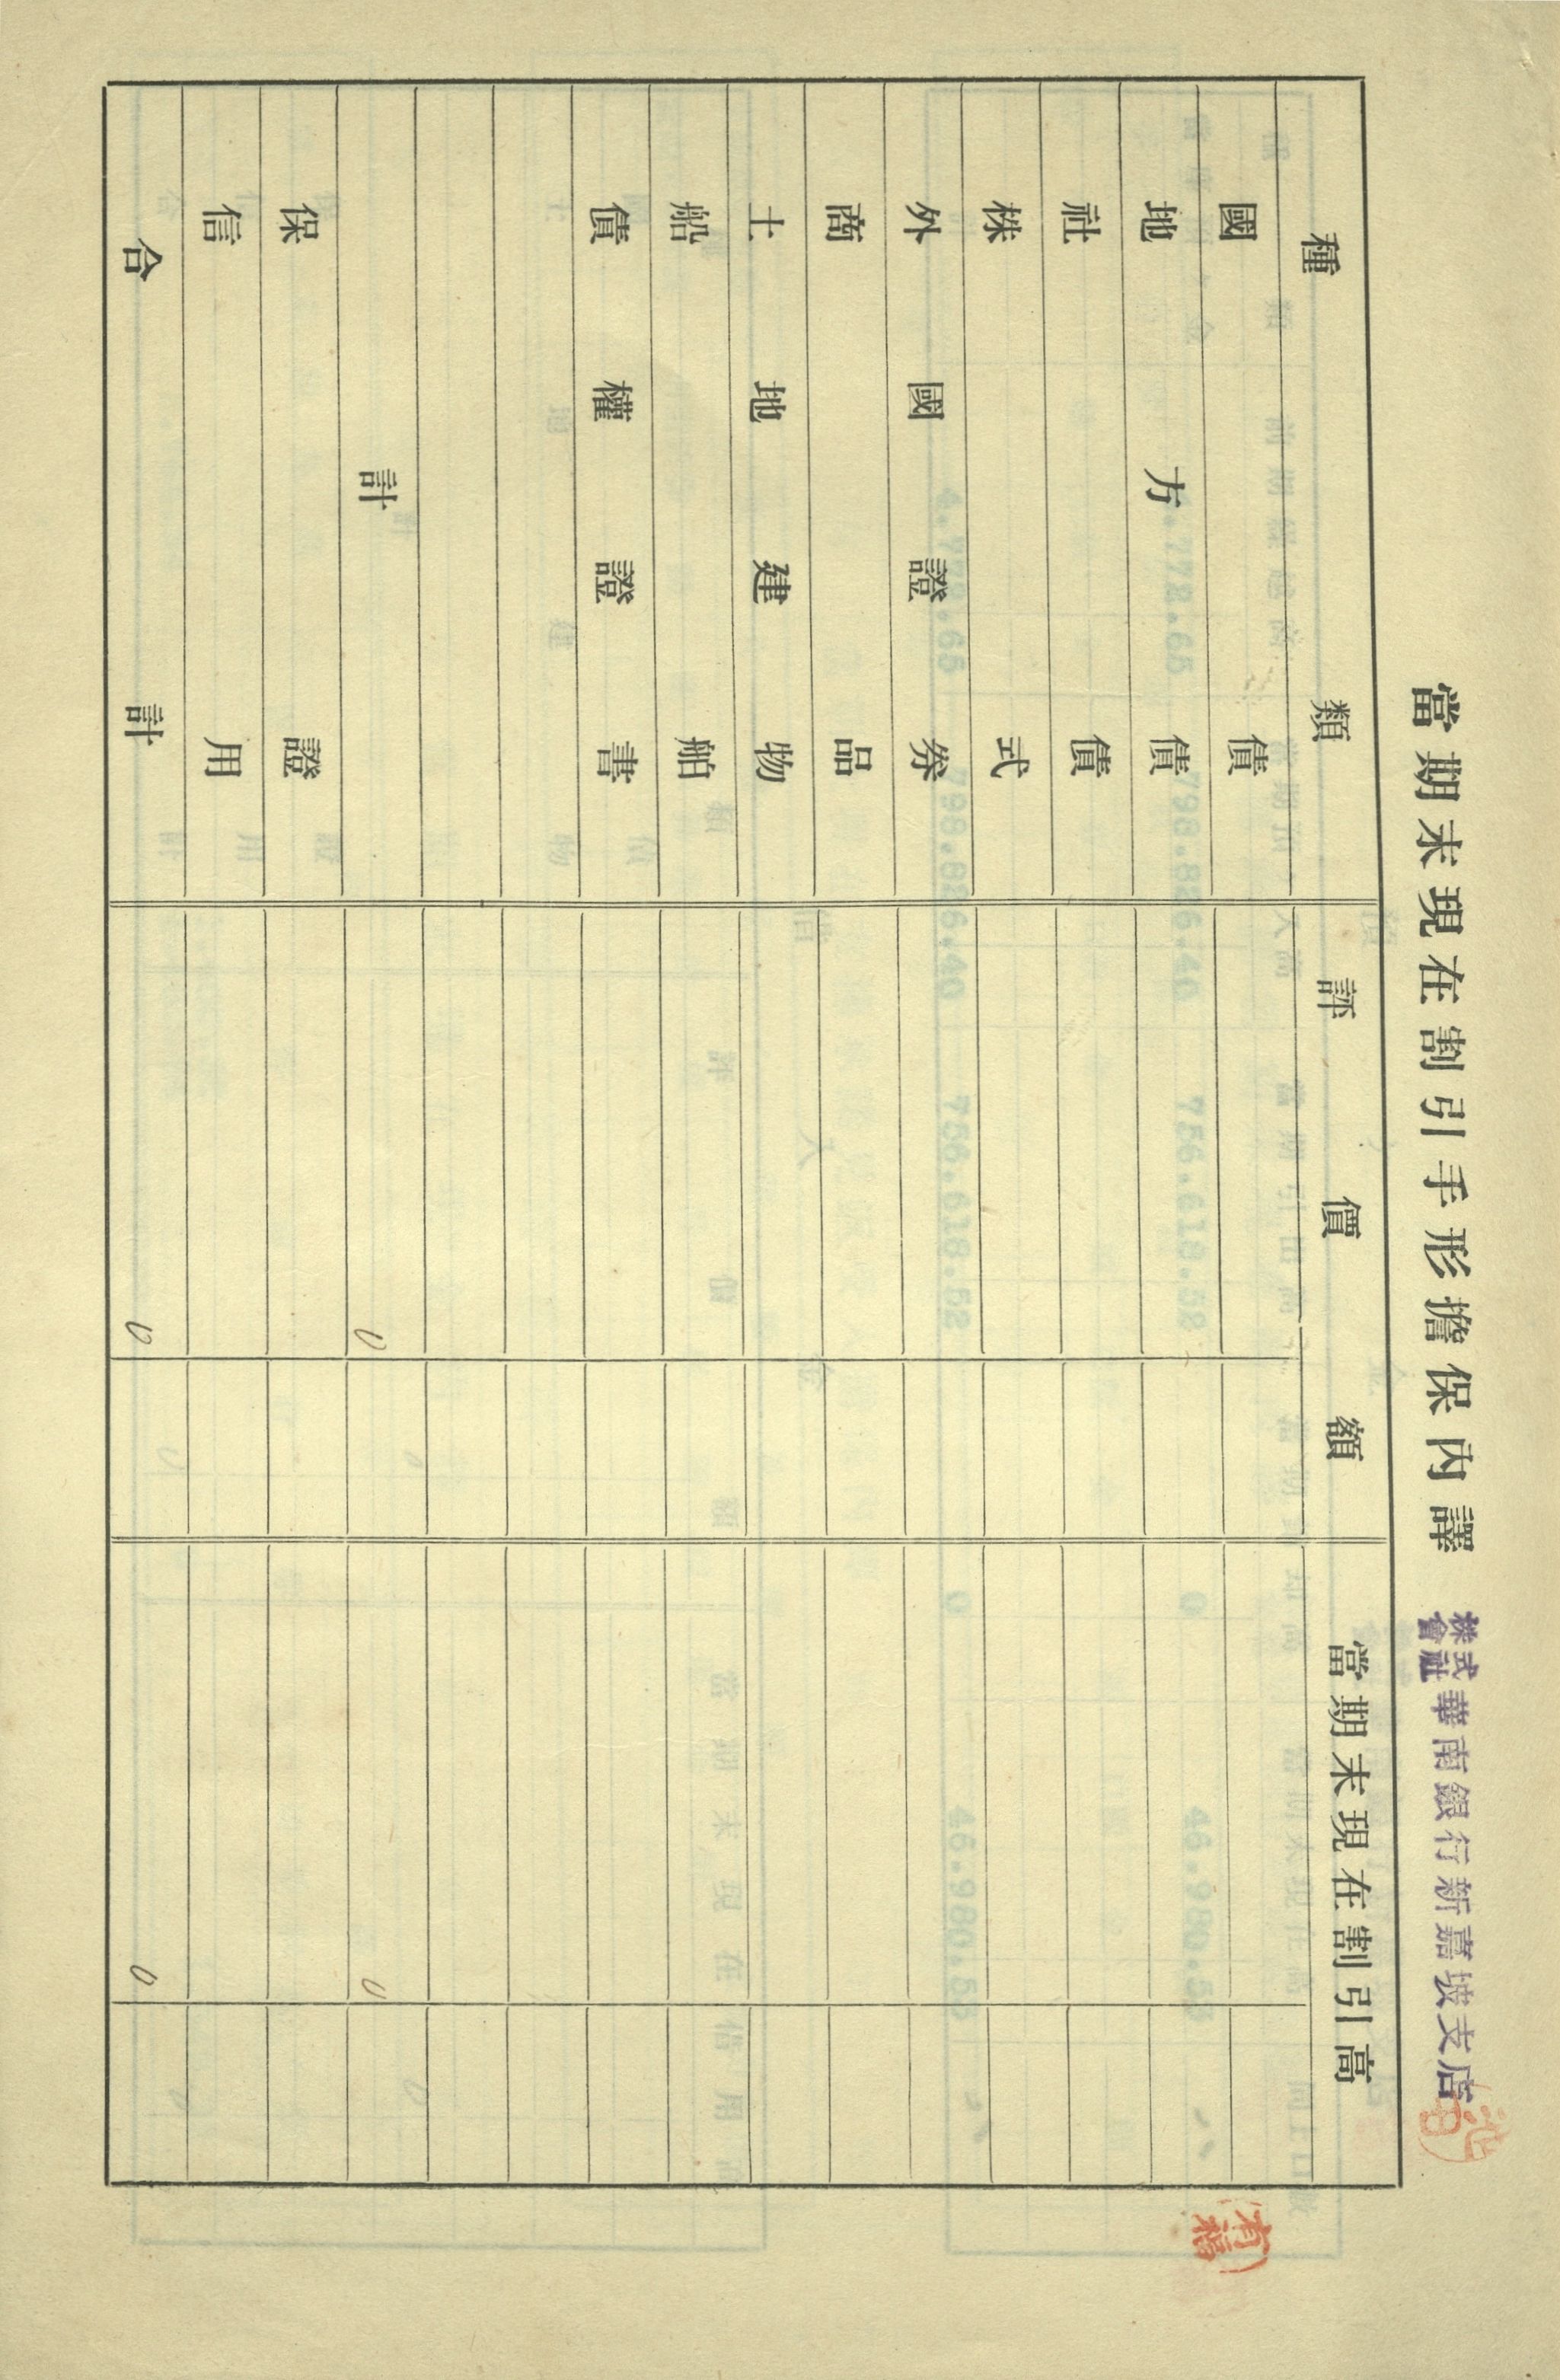 當期末現在割引手形擔保內譯 株式會社華南銀行新嘉坡支店
種類 評價額 當期末現在割引高
國債
地方債
社債
株式
外國證券
商品
土地建物
船舶
債權證書
計 0 0
保證
信用
合計 0 0
有福